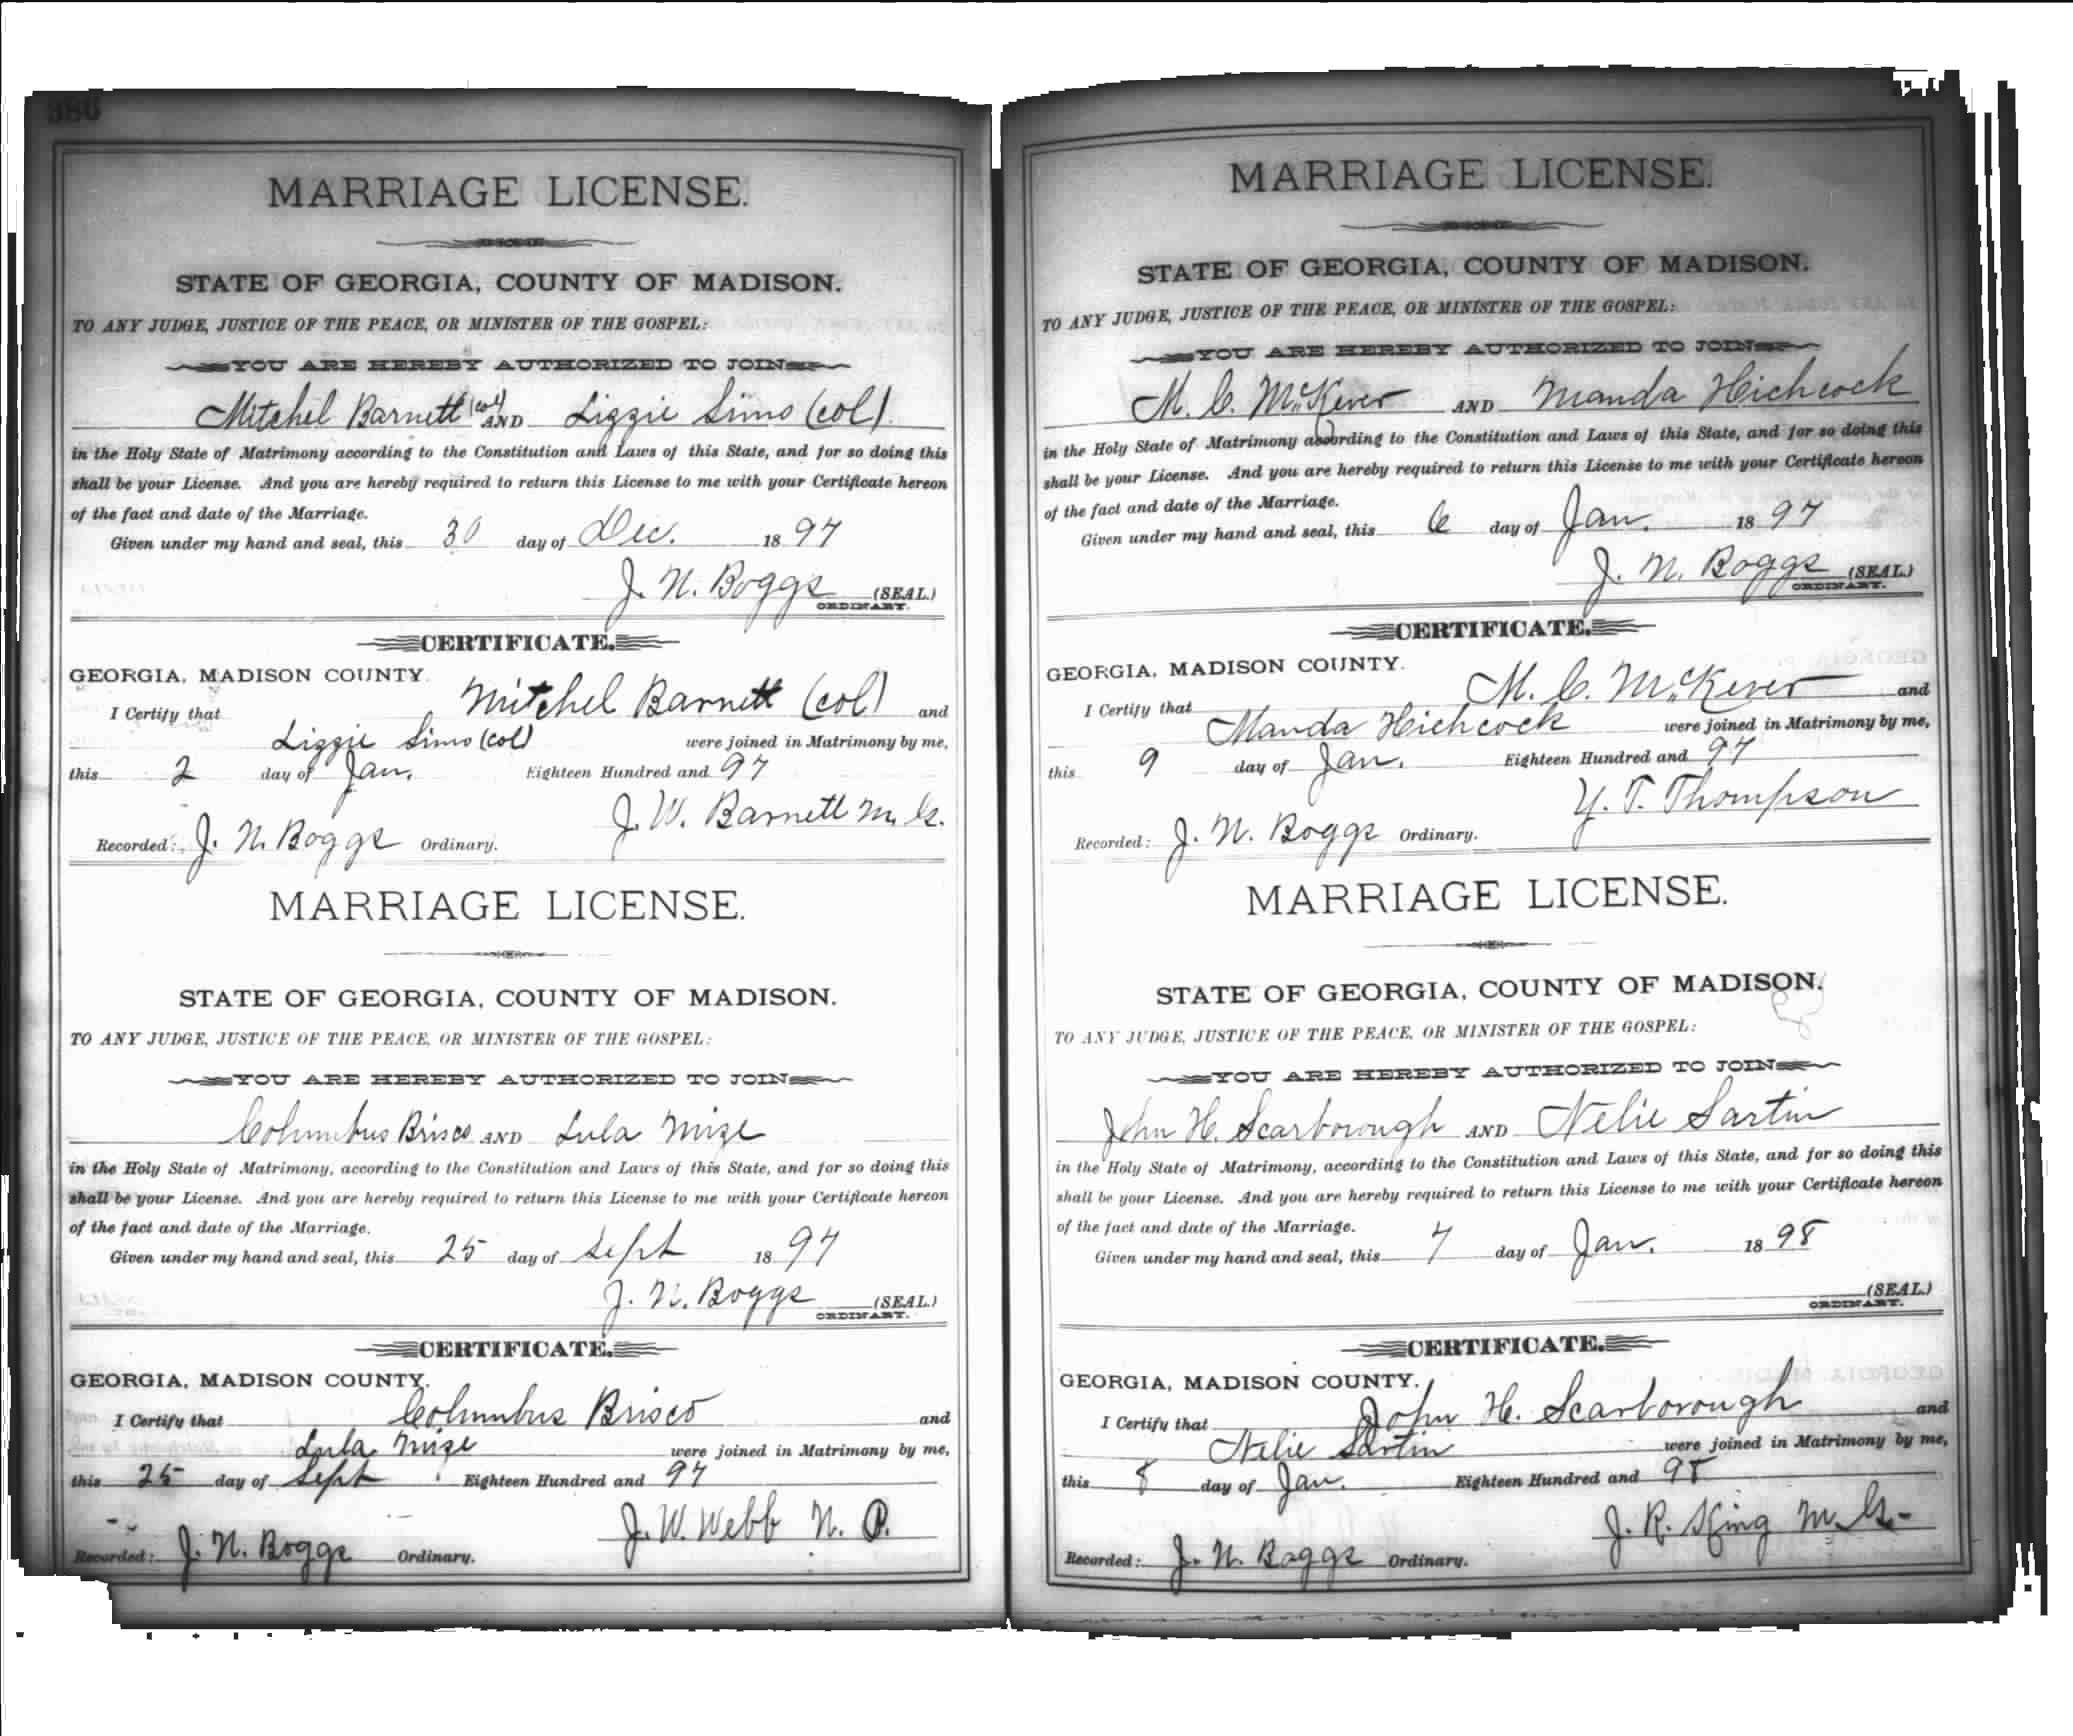 386
MARRIAGE LICENSE.
STATE OF GEORGIA, COUNTY OF MADISON.
TO ANY JUDGE, JUSTICE OF THE PEACE, OR MINISTER OF THE GOSPEL:
YOU ARE HEREBY AUTHORIZED TO JOIN
Mitchel Barnett (col) AND Lizzie Sims (col)
in the Holy State of Matrimony according to the Constitution and Laws of this State, and for so doing this
shall be your License. And you are hereby required to return this License to me with your Certificate hereon
of the fact and date of the Marriage.
Given under my hand and seal, this 30 day of Dec. 1897
J. N. Boggs (SEAL.)
ORDINARY.
CERTIFICATE.
GEORGIA, MADISON COUNTY.
I Certify that Mitchel Barnett (col) and
Lizzie Sims (col) were joined in Matrimony by me,
this 2 day of Jan. Eighteen Hundred and 97
J. W. Barnett M. G.
Recorded: J. N. Boggs Ordinary.
MARRIAGE LICENSE.
STATE OF GEORGIA, COUNTY OF MADISON.
TO ANY JUDGE, JUSTICE OF THE PEACE, OR MINISTER OF THE GOSPEL:
YOU ARE HEREBY AUTHORIZED TO JOIN
Columbus Brisco AND Lula Mize
in the Holy State of Matrimony, according to the Constitution and Laws of this State, and for so doing this
shall be your License. And you are hereby required to return this License to me with your Certificate hereon
of the fact and date of the Marriage.
Given under my hand and seal, this 25 day of Sept 1897
J. N. Boggs (SEAL.)
ORDINARY.
CERTIFICATE.
GEORGIA, MADISON COUNTY.
I Certify that Columbus Brisco and
Lula Mize were joined in Matrimony by me,
this 25 day of Sept Eighteen Hundred and 97
J. W. Webb N. P.
Recorded: J. N. Boggs Ordinary.
MARRIAGE LICENSE.
STATE OF GEORGIA, COUNTY OF MADISON.
TO ANY JUDGE, JUSTICE OF THE PEACE, OR MINISTER OF THE GOSPEL:
YOU ARE HEREBY AUTHORIZED TO JOIN
M. C. McKever AND Manda Hichcock
in the Holy State of Matrimony according to the Constitution and Laws of this State, and for so doing this
shall be your License. And you are hereby required to return this License to me with your Certificate hereon
of the fact and date of the Marriage.
Given under my hand and seal, this 6 day of Jan. 1897
J. N. Boggs (SEAL.)
ORDINARY.
CERTIFICATE.
GEORGIA, MADISON COUNTY.
I Certify that M. C. McKever and
Manda Hichcock were joined in Matrimony by me,
this 9 day of Jan. Eighteen Hundred and 97
Y. T. Thompson
Recorded: J. N. Boggs Ordinary.
MARRIAGE LICENSE.
STATE OF GEORGIA, COUNTY OF MADISON.
TO ANY JUDGE, JUSTICE OF THE PEACE, OR MINISTER OF THE GOSPEL:
YOU ARE HEREBY AUTHORIZED TO JOIN
John H. Scarborough AND Nelie Sartin
in the Holy State of Matrimony, according to the Constitution and Laws of this State, and for so doing this
shall be your License. And you are hereby required to return this License to me with your Certificate hereon
of the fact and date of the Marriage.
Given under my hand and seal, this 7 day of Jan. 1898
(SEAL.)
ORDINARY.
CERTIFICATE.
GEORGIA, MADISON COUNTY.
I Certify that John H. Scarborough and
Nelie Sartin were joined in Matrimony by me,
this 8 day of Jan. Eighteen Hundred and 98
J. R. King M. G.
Recorded: J. N. Boggs Ordinary.